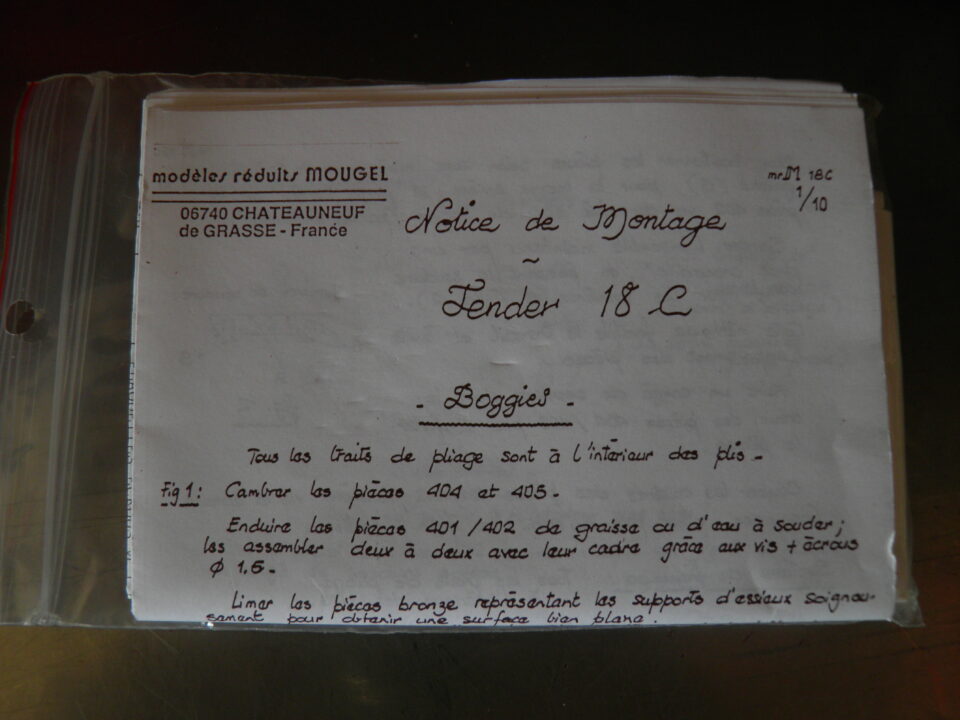 modèles réduits MOUGEL
06740 CHATEAUNEUF
de GRASSE - France
mrM 18C
1/10
Notice de Montage
~
Tender 18 C
- Boggies -
Tous les traits de pliage sont à l'intérieur des plis -
Fig 1: Cambrer les pièces 404 et 405 -
Enduire les pièces 401 / 402 de graisse ou d'eau à souder;
les assembler deux à deux avec leur cadre grâce aux vis + écrous
φ 1,5 -
Limer les pièces bronze représentant les supports d'essieux soigneu-
sement pour obtenir une surface bien plane.